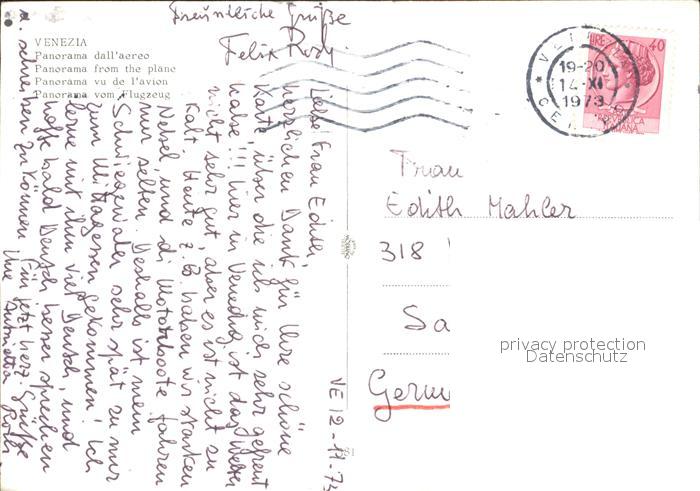 Freundliche Grüße
Felix Roth
VENEZIA
Panorama dall'aereo
Panorama from the plane
Panorama vu de l'avion
Panorama vom Flugzeug
VE 12-11-73
Liebe Frau Edith,
herzlichen Dank für Ihre schöne
Karte, über die ich mich sehr gefreut
habe!!! Hier in Venedig ist das Wetter
nicht sehr gut, aber es ist nicht zu
Kalt. Heute z.B. haben wir starken
Nebel, und di Motorboote fahren
nur selten. Deshalb ist mein
Schwiegervater sehr spät zu mir
zum Mittagessen gekommen! Ich
lerne mit ihm viel Deutsch, und
hoffe bald Deutsch besser sprechen
u. schreiben zu können. Für jetzt herz. Grüße
Ihre
Roth
VENEZIA
19-20
14-XI
1973
LIRE 40
REPUBBLICA
ITALIANA
Frau
Edith Mahler
318
Sa
Germ
privacy protection
Datenschutz